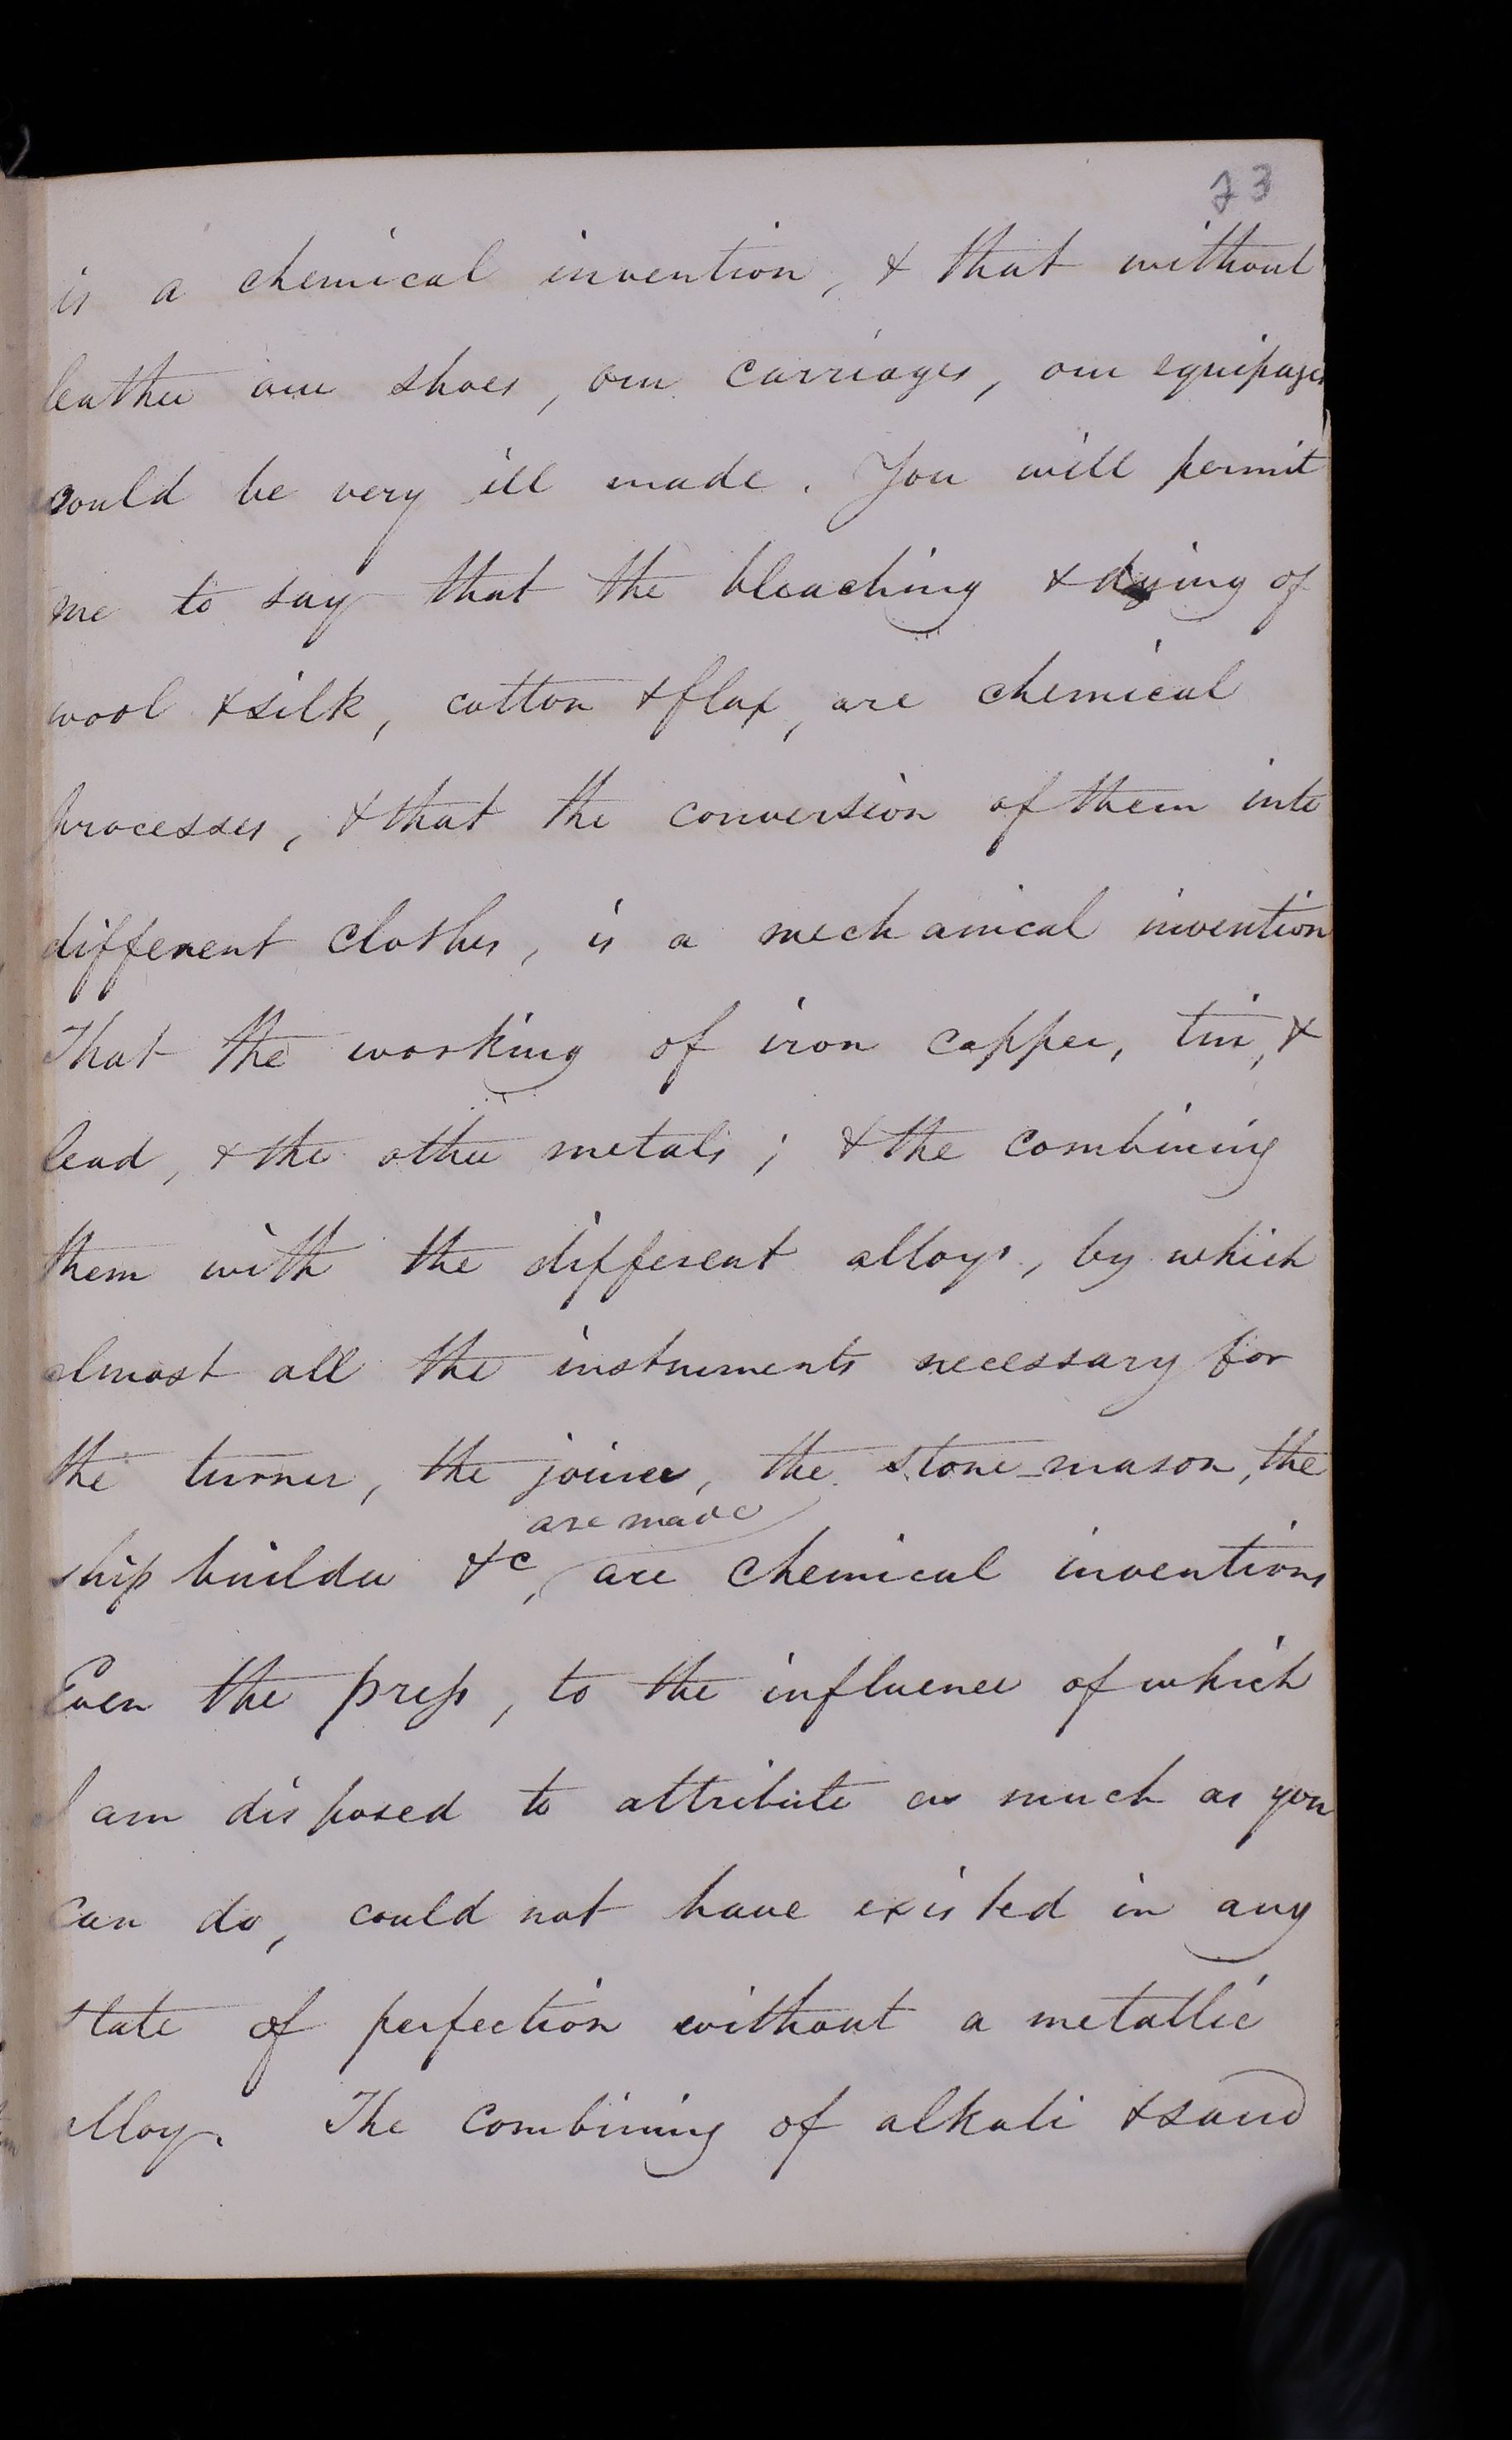 73
is a chemical invention, & that without
leather our shoes, our carriages, our equipages
would be very ill made. You will permit
me to say that the bleaching & dying of
wool & silk, cotton & flax, are chemical
processes, & that the conversion of them into
different clothes, is a mechanical invention
That the working of iron copper, tin, &
lead, & the other metals; & the combining
them with the different alloys, by which
almost all the instruments necessary for
the turner, the joiner, the stone-mason, the
are made
ship builder &c, are chemical inventions
Even the press, to the influence of which
I am disposed to attribute as much as you
can do, could not have existed in any
state of perfection without a metallic
alloy. The combining of alkali & sand